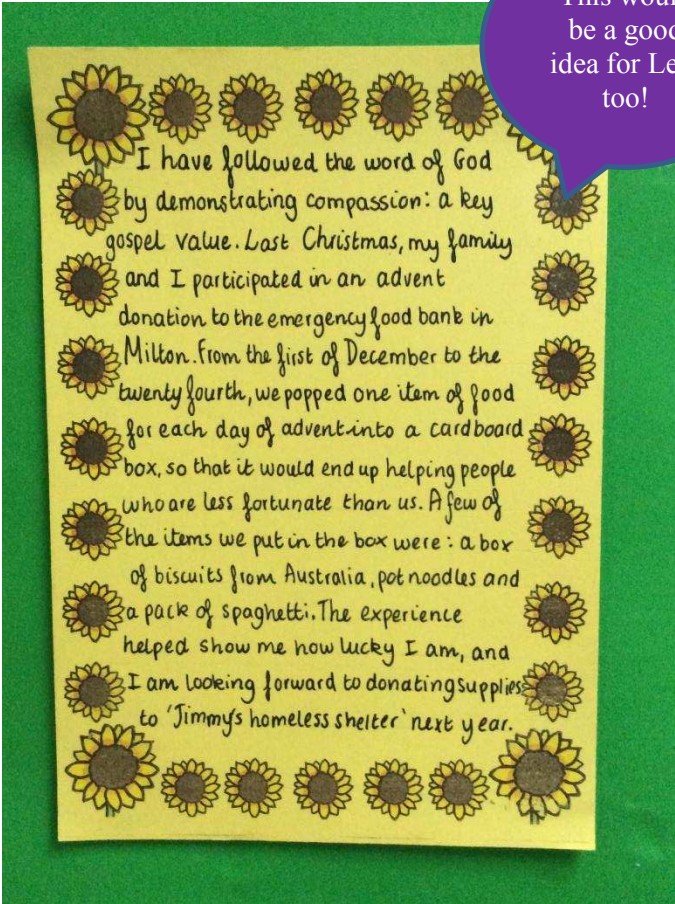 This would
be a good
idea for
too!
I have followed the word of God
by demonstrating compassion: a key
gospel value. Last Christmas, my family
and I participated in an advent
donation to the emergency food bank in
Milton. From the first of December to the
twenty fourth, we popped one item of food
for each day of advent into a cardboard
box, so that it would end up helping people
who are less fortunate than us. A few of
the items we put in the box were: a box
of biscuits from Australia, pot noodles and
a pack of spaghetti. The experience
helped show me how lucky I am, and
I am looking forward to donating supplies
to 'Jimmy's homeless shelter' next year.